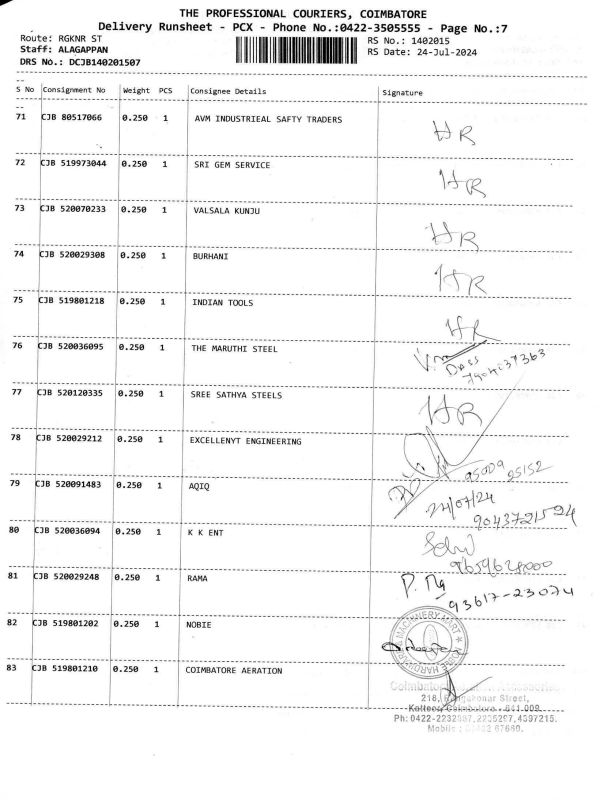 THE PROFESSIONAL COURIERS, COIMBATORE
Delivery Runsheet - PCX - Phone No.:0422-3505555 - Page No.:7
Route: RGKNR ST
RS No.: 1402015
Staff: ALAGAPPAN
RS Date: 24-Jul-2024
DRS No.: DCJB140201507
S No Consignment No Weight PCS Consignee Details Signature
71 CJB 80517066 0.250 1 AVM INDUSTRIEAL SAFTY TRADERS HR
72 CJB 519973044 0.250 1 SRI GEM SERVICE HR
73 CJB 520070233 0.250 1 VALSALA KUNJU HR
74 CJB 520029308 0.250 1 BURHANI HR
75 CJB 519801218 0.250 1 INDIAN TOOLS HR
76 CJB 520036095 0.250 1 THE MARUTHI STEEL
Dass
77 CJB 520120335 0.250 1 SREE SATHYA STEELS HR
78 CJB 520029212 0.250 1 EXCELLENYT ENGINEERING
95009 25152
79 CJB 520091483 0.250 1 AQIQ
24/07/24
9043721524
80 CJB 520036094 0.250 1 K K ENT
81 CJB 520029248 0.250 1 RAMA
93617-23074
82 CJB 519801202 0.250 1 NOBIE
MACHINERY MART
83 CJB 519801210 0.250 1 COIMBATORE AERATION
218, Street,
Kattoor, Coimbatore - 641 009.
Mobile :